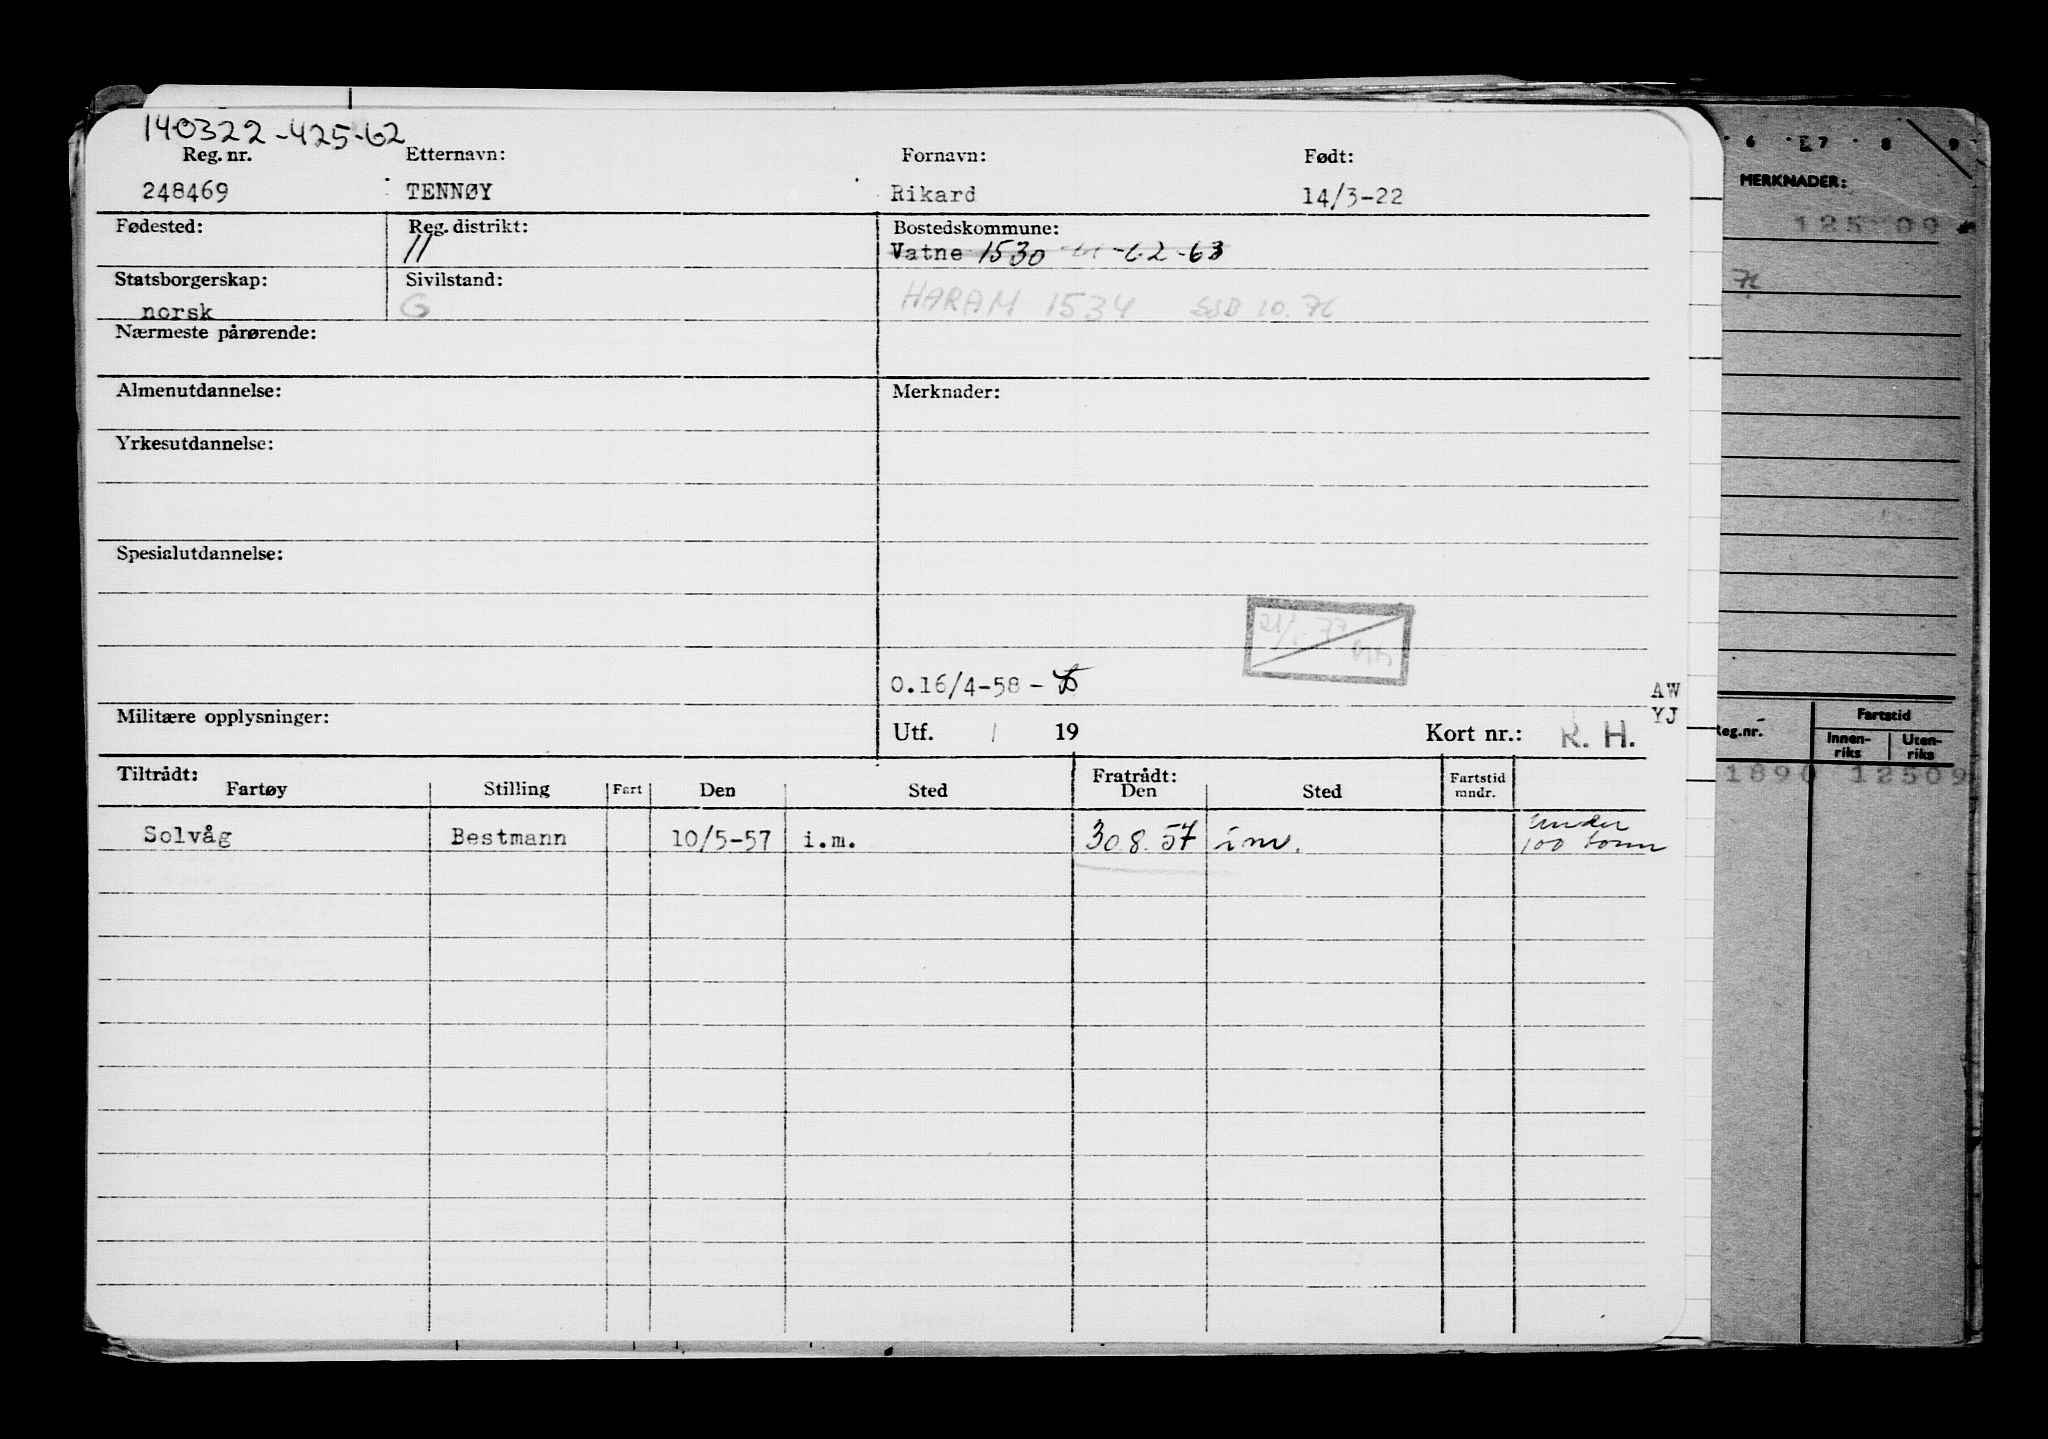 140322-425-62
Reg. nr. Etternavn: Fornavn: Født:
248469 TENNØY Rikard 14/3-22
Fødested: Reg. distrikt: Bostedskommune:
11 Vatne 1530 -62-63
Statsborgerskap: Sivilstand:
norsk G HARAM 1534 SSB 10.76
Nærmeste pårørende:
Almenutdannelse: Merknader:
Yrkesutdannelse:
Spesialutdannelse:
77
0.16/4-58 -
Militære opplysninger: Utf. / 19 Kort nr.: R. H.
AW
YJ
Tiltrådt: Fratrådt:
Fartøy Stilling Fart Den Sted Den Sted Fartstid mndr.
Solvåg Bestmann 10/5-57 i.m. 30.8.57 i m. under
100 tonn
6 7 8 9
MERKNADER:
125 09
76
Reg.nr. Fartstid
Innen-
riks Uten-
riks
1890 12509